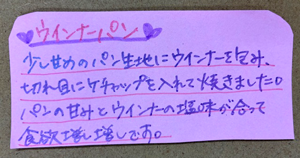 ウインナーパン
少し甘めのパン生地にウインナーを包み、
切れ目にケチャップを入れて焼きました。
パンの甘みとウインナーの塩味が合って
食欲増し増しです。